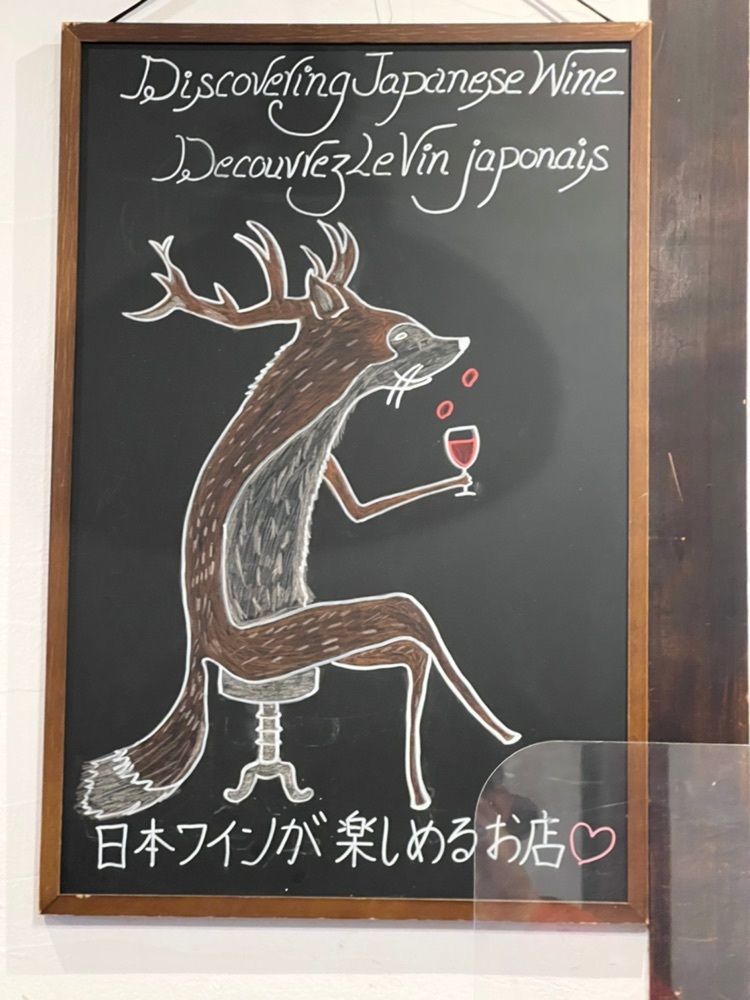 Discovering Japanese Wine
Decouvrez Le Vin japonais
日本ワインが楽しめるお店♡